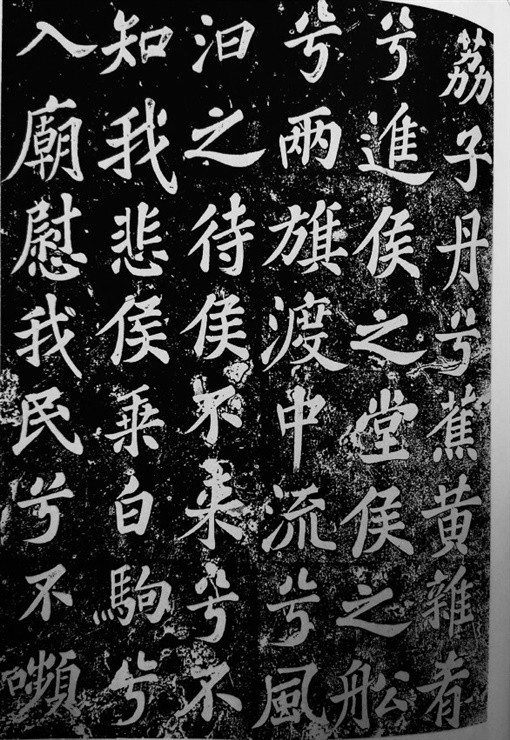 荔子丹兮蕉黄雜肴
兮進侯之堂侯之舩
兮兩旗渡中流兮風
汨之待侯不来兮不
知我悲侯乗白駒兮
入廟慰我民兮不嚬